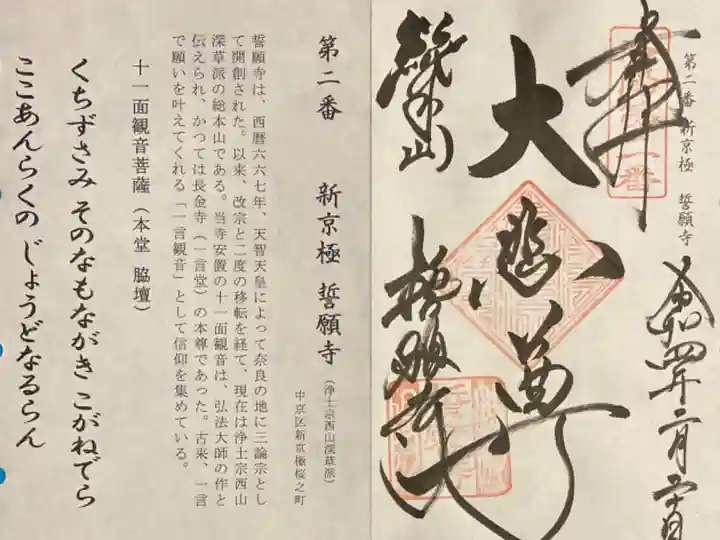 奉拝
第二番 新京極 誓願寺
令和四年二月二十日
大悲尊
総本山
誓願寺
第二番 新京極 誓願寺
(浄土宗西山深草派)
中京区新京極桜之町
誓願寺は、西暦六六七年、天智天皇によって奈良の地に三論宗とし
て開創された。以来、改宗と二度の移転を経て、現在は浄土宗西山
深草派の総本山である。当寺安置の十一面観音は、弘法大師の作と
伝えられ、かつては長金寺(一言堂)の本尊であった。古来、一言
で願いを叶えてくれる「一言観音」として信仰を集めている。
十一面観音菩薩(本堂 脇壇)
くちずさみ そのなもながき こがねでら
ここあんらくの じょうどなるらん